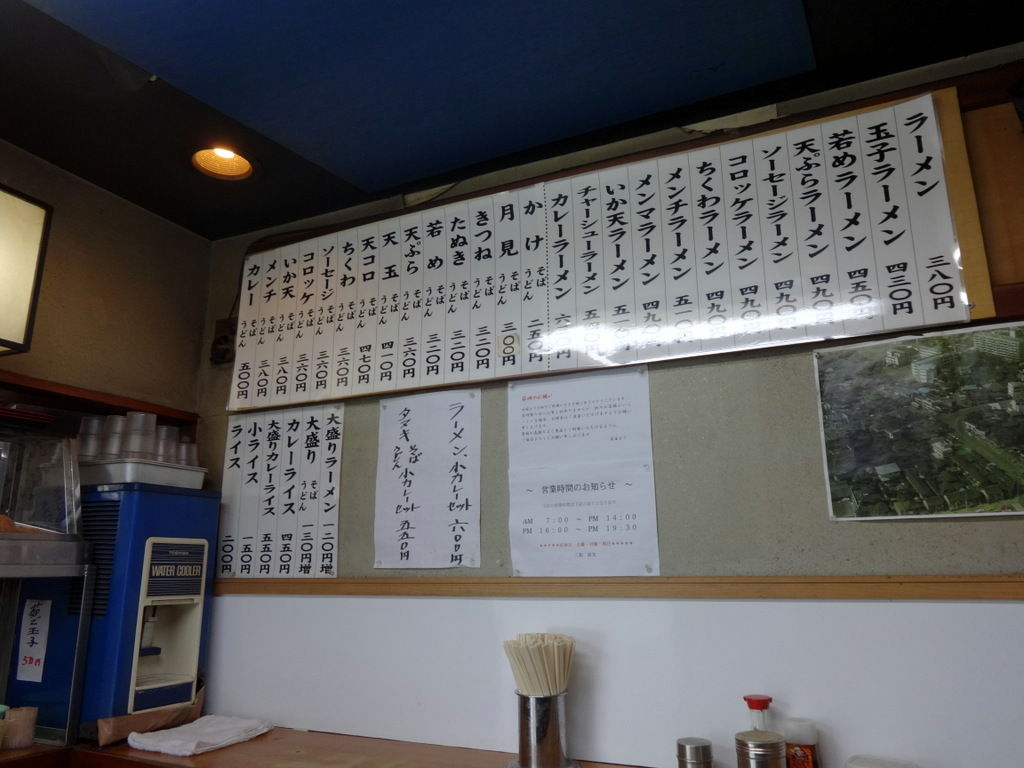 ラーメン 三八〇円
玉子ラーメン 四三〇円
若めラーメン 四五〇円
天ぷらラーメン 四九〇円
ソーセージラーメン 四九〇
コロッケラーメン 四九〇
ちくわラーメン 四九〇
メンチラーメン 五一〇
メンマラーメン 四九〇
いか天ラーメン
チャーシューラーメン
カレーラーメン
かけ そば うどん 二五〇円
月見 そば うどん 三〇〇円
きつね そば うどん 三二〇円
たぬき そば うどん 三二〇円
若め そば うどん 三二〇円
天ぷら そば うどん 三六〇円
天玉 そば うどん 四一〇円
天コロ そば うどん 四七〇円
ちくわ そば うどん 三六〇円
ソーセージ そば うどん 三六〇円
コロッケ そば うどん 三六〇円
いか天 そば うどん 三八〇円
メンチ そば うどん 三八〇円
カレー そば うどん 五〇〇円
大盛りラーメン 一二〇円増
大盛り そば うどん 一三〇円増
カレーライス 四五〇円
大盛りカレーライス 五五〇円
小ライス 一五〇円
ライス 二〇〇円
ラーメン、小カレーセット 六〇〇円
タヌキ そば うどん 小カレーセット 五五〇円
～ 営業時間のお知らせ ～
AM 7:00 ～ PM 14:00
PM 16:00 ～ PM 19:30
TOSHIBA
WATER COOLER
玉子
50円